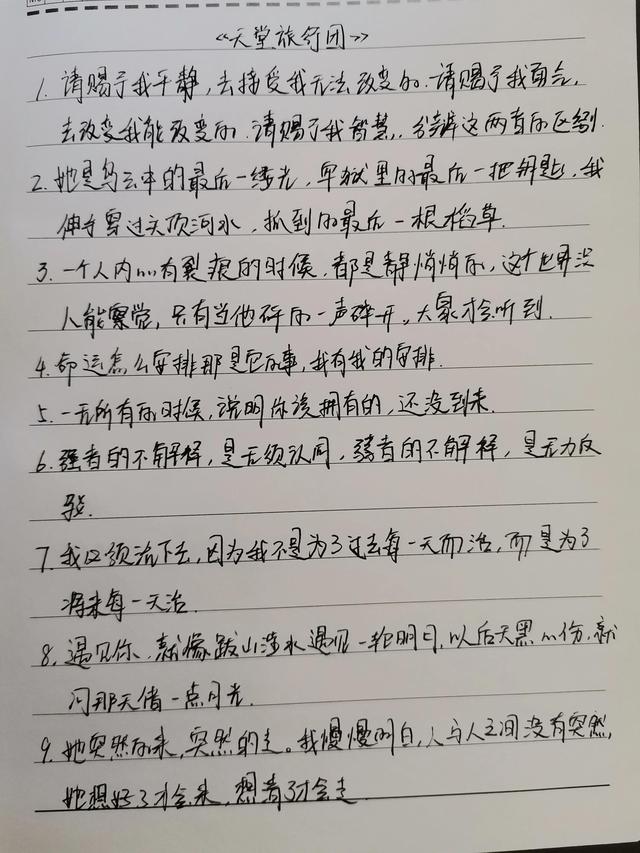 《天堂旅行团》
1. 请赐予我平静,去接受我无法改变的.请赐予我勇气,
去改变我能改变的.请赐予我智慧,分辨这两者的区别.
2. 她是乌云中的最后一缕光,牢狱里的最后一把钥匙,我
伸手穿过头顶河水,抓到的最后一根稻草.
3. 一个人内心有裂痕的时候,都是静悄悄的,这个世界没
人能察觉,只有当他砰的一声碎开,大家才会听到.
4. 命运怎么安排那是它的事,我有我的安排.
5. 一无所有的时候,说明你该拥有的,还没到来.
6. 强者的不解释,是无须认同,弱者的不解释,是无力反
驳.
7. 我必须活下去,因为我不是为了过去每一天而活,而是为了
将来每一天活.
8. 遇见你,就像跋山涉水遇见一轮明月,以后天黑心伤,就
问那天借一点月光.
9. 她突然的来,突然的走。我慢慢明白,人与人之间没有突然,
她想好了才会来,想清了才会走.